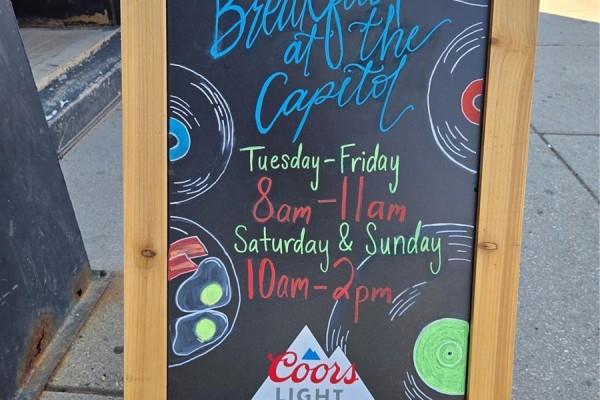 Breakfast
at the
Capitol
Tuesday-Friday
8am-11am
Saturday & Sunday
10am-2pm
Coors
LIGHT